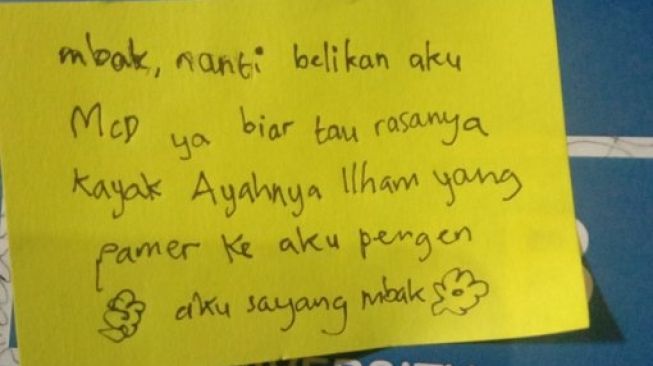 mbak, nanti belikan aku
McD ya biar tau rasanya
kayak Ayahnya Ilham yang
pamer ke aku pengen
aku sayang mbak